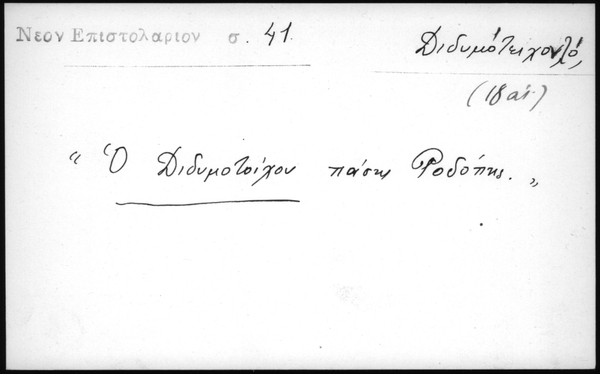 Νεον Επιστολαριον σ. 41.
Διδυμότειχον, τό,
(18 αἰ.)
“ Ὁ Διδυμοτοίχου πάσης Ροδόπης. „